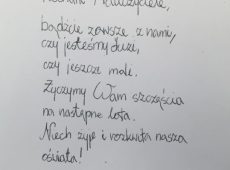 Kochani Nauczyciele,
bądźcie zawsze z nami,
czy jesteśmy duże,
czy jeszcze małe.
Życzymy Wam szczęścia
na następne lata.
Niech żyje i rozkwita nasza
oświata!